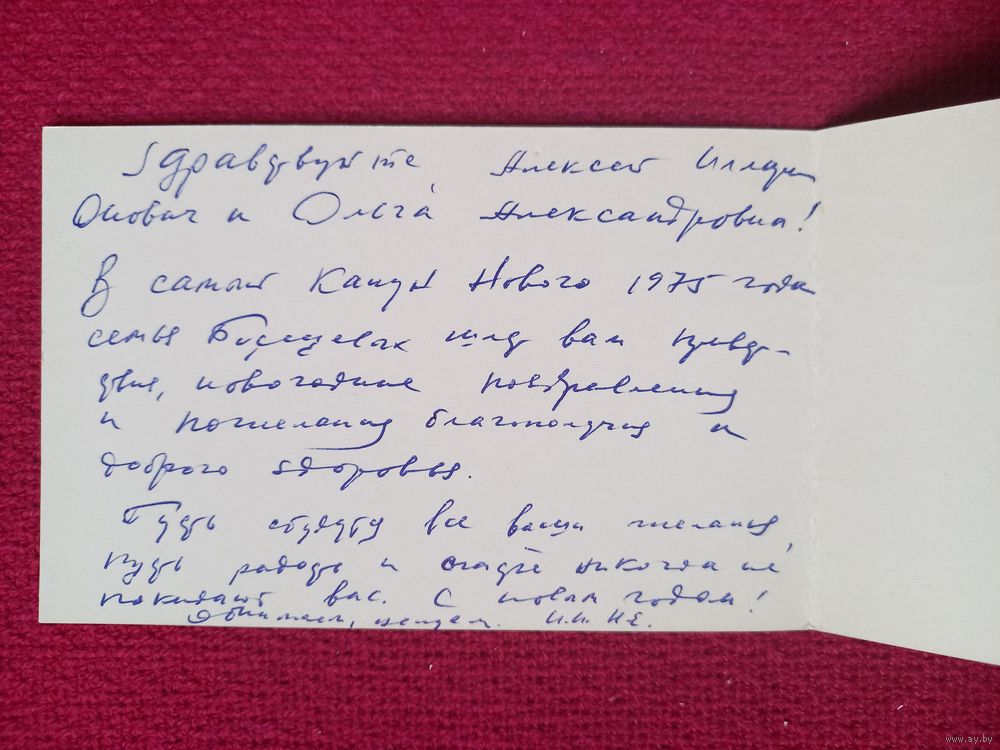 Здравствуйте Алексей Илларi
Онович и Ольга Александровна!
В самый канун Нового 1975 года
семья шлет вам
новогодние поздравления
и пожелания благополучия и
доброго здоровья.
Пусть сбудутся все ваши желания,
пусть радость и счастье никогда не
покидают вас. С новым годом!
Обнимаем, целуем. И.И. Н.Е.
www.ay.by